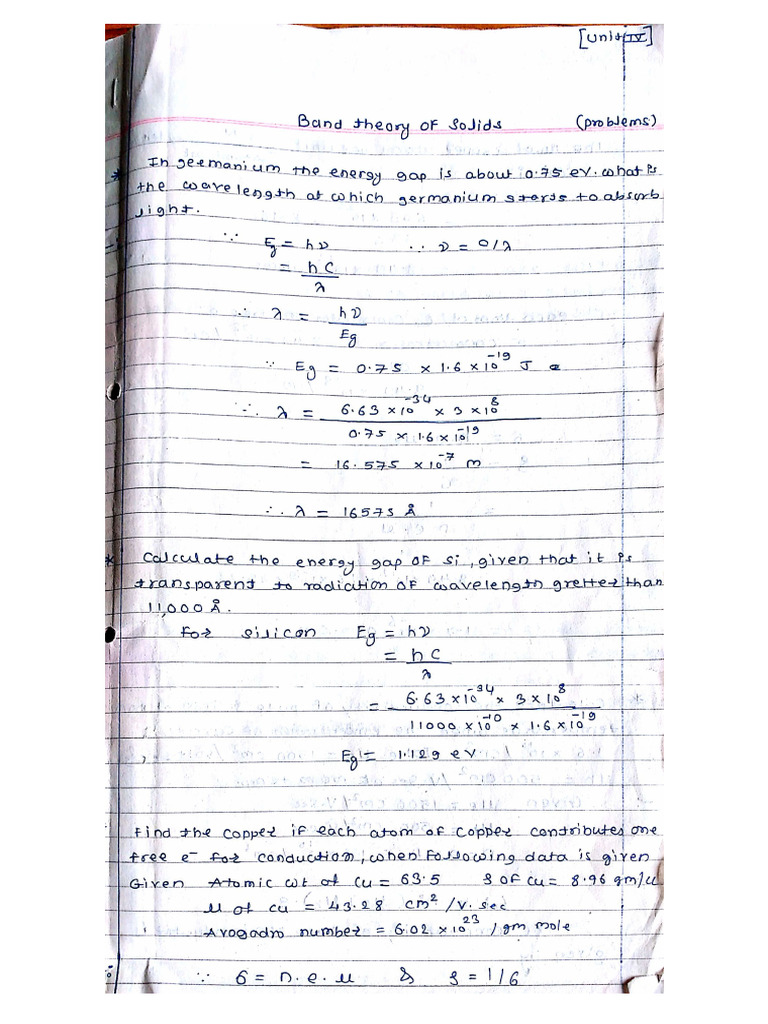 [Unit IV]
Band theory of Solids (problems)
* In germanium the energy gap is about 0.75 eV. what is
the wavelength at which germanium sterts to absurb
light.
∵ Eg = hν ∴ ν = C/λ
= hC/λ
∴ λ = hν/Eg
∵ Eg = 0.75 × 1.6 × 10⁻¹⁹ J
∴ λ = 6.63 × 10⁻³⁴ × 3 × 10⁸ / 0.75 × 1.6 × 10⁻¹⁹
= 16.575 × 10⁻⁷ m
∴ λ = 16575 Å
* Calculate the energy gap of Si, given that it is
transparent to radiation of wavelength gretter than
11,000 Å.
For silicon Eg = hν
= hC/λ
= 6.63 × 10⁻³⁴ × 3 × 10⁸ / 11000 × 10⁻¹⁰ × 1.6 × 10⁻¹⁹
Eg = 1.129 eV
Find the copper if each atom of copper contributes one
free e⁻ for conduction, when following data is given
Given Atomic wt of Cu = 63.5 ρ of Cu = 8.96 gm/cc
μ of cu = 43.28 cm²/v.sec
Avogadro number = 6.02 × 10²³ /gm mole
∵ σ = n.e.μ & ρ = 1/σ